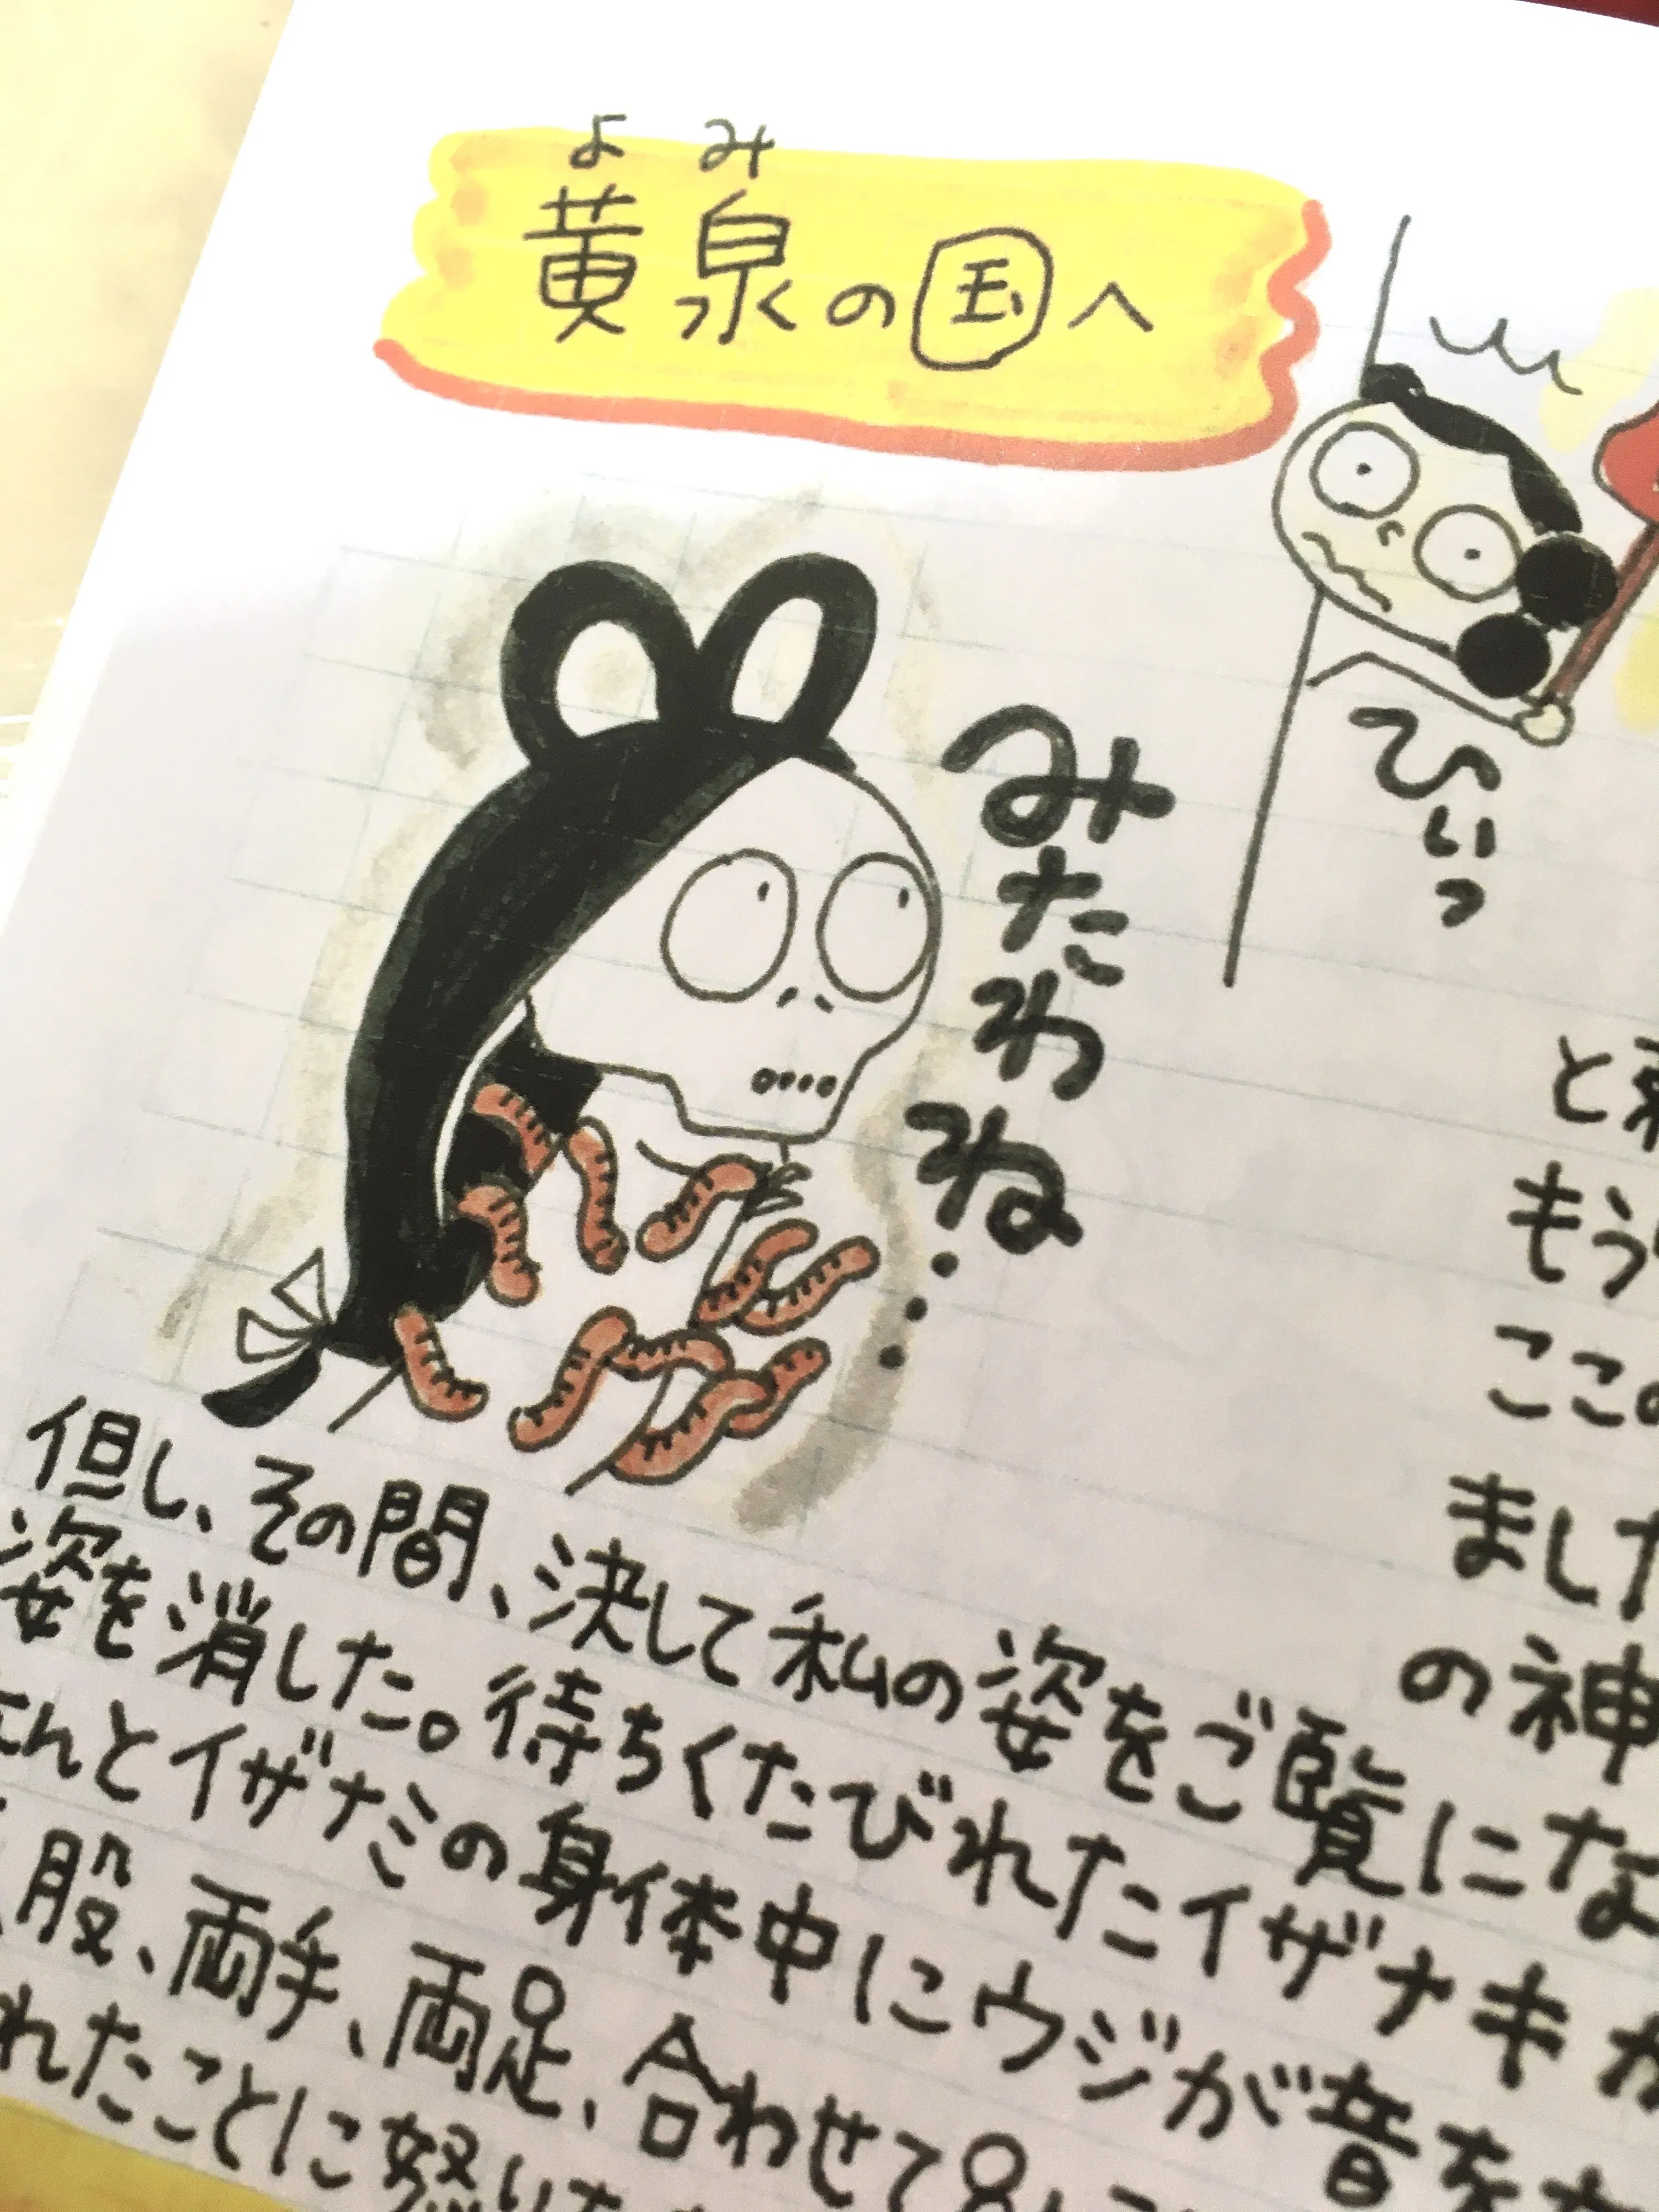 よみ
黄泉の国へ
ひぃっ
みたわね…
と
もう
ここの
ました
の神
但し、その間、決して私の姿をご覧にな
姿を消した。待ちくたびれたイザナキが
なんとイザナミの身体中にウジが音をた
股、両手、両足、合わせて8
れたことに怒り